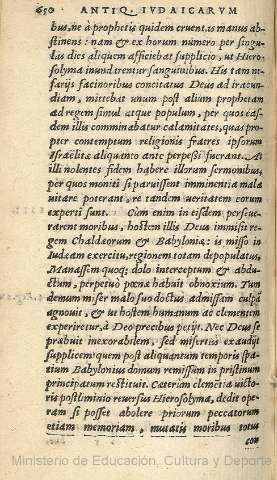 650 ANTIQ. IVDAICARVM
bus, ne à prophetis quidem cruentas manus ab-
stinens: nam & ex horum numero per singu-
las dies aliquem afficiebat supplicio, ut Hiero-
solyma inundarentur sanguinibus. His tam ne-
farijs facinoribus concitatus Deus ad iracun-
diam, mittebat unum post alium prophetam
ad regem simul atque populum, per quos eas-
dem illis comminabatur calamitates, quas pro-
pter contemptum religionis fratres ipsorum
Israëlitæ aliquanto ante perpeßi fuerant. At
illi nolentes fidem habere illorum sermonibus,
per quos moniti si paruissent imminentia mala
uitare poterant, re tandem ueritatem eorum
experti sunt. Cùm enim in eisdem perseue-
rarent moribus, hostem illis Deus immisit re-
gem Chaldæorum & Babyloniæ: is misso in
Iudæam exercitu, regionem totam depopulatus,
Manassem quoq; dolo interceptum & abdu-
ctum, perpetuò pœnæ habuit obnoxium. Tum
demum miser malo suo doctus admissam culpā
agnouit, & ut hostem humanum ac clementem
experiretur, à Deo precibus petijt. Nec Deus se
præbuit inexorabilem, sed misertus exaudijt
supplicem: quem post aliquantum temporis spa-
tium Babylonius domum remissum in pristinum
principatum restituit. Cæterùm clemētia uictoris
postliminio reuersus Hierosolyma, dedit ope-
ram si posset abolere priorum peccatorum
etiam memoriam, mutatis moribus totus
con
Ministerio de Educación, Cultura y Deporte